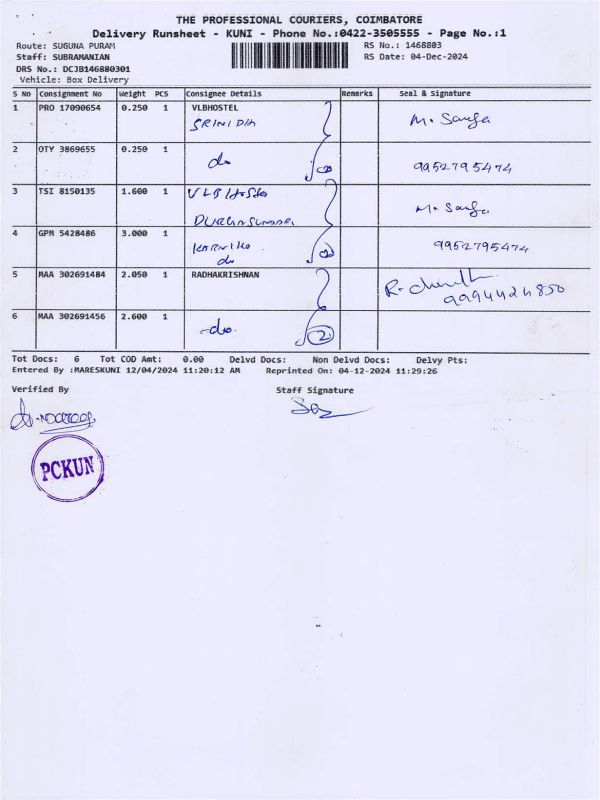 THE PROFESSIONAL COURIERS, COIMBATORE
Delivery Runsheet - KUNI - Phone No.:0422-3505555 - Page No.:1
Route: SUGUNA PURAM RS No.: 1468803
Staff: SUBRAMANIAN RS Date: 04-Dec-2024
DRS No.: DCJB146880301
Vehicle: Box Delivery
S No Consignment No Weight PCS Consignee Details Remarks Seal & Signature
1 PRO 17090654 0.250 1 VLBHOSTEL
SRINIDIA M. Sanga
2 OTY 3869655 0.250 1
do 9952795474
3 TSI 8150135 1.600 1 VLB
M. Sanga
4 GPM 5428486 3.000 1
do 9952795474
5 MAA 302691484 2.050 1 RADHAKRISHNAN
9994424850
6 MAA 302691456 2.600 1
-do- 2
Tot Docs: 6 Tot COD Amt: 0.00 Delvd Docs: Non Delvd Docs: Delvy Pts:
Entered By :MARESKUNI 12/04/2024 11:20:12 AM Reprinted On: 04-12-2024 11:29:26
Verified By Staff Signature
PCKUN